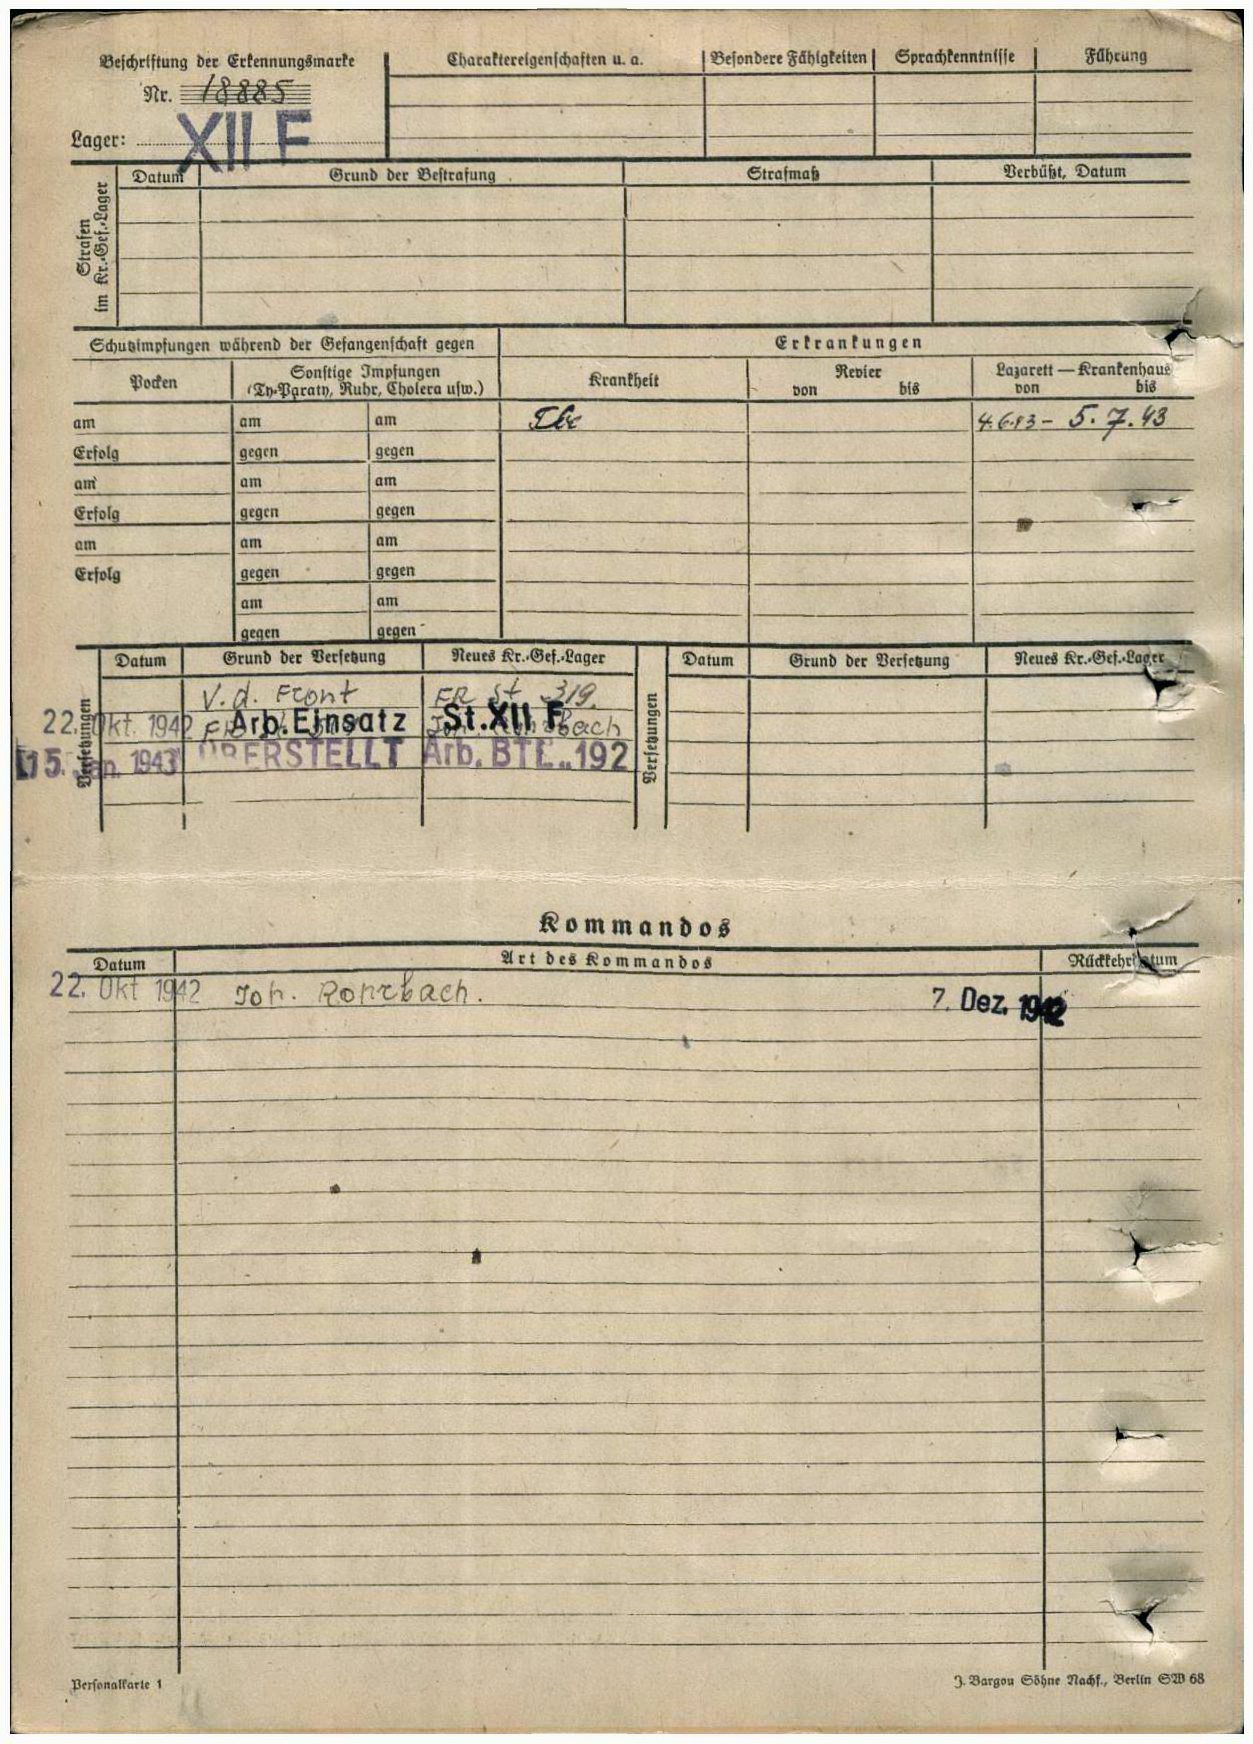 Beschriftung der Erkennungsmarke
Nr. 18885
Lager: XII F
Charaktereigenschaften u. a. Besondere Fähigkeiten Sprachkenntnisse Führung
Strafen
im Kr.-Gef.-Lager
Datum Grund der Bestrafung Strafmaß Verbüßt, Datum
Schutzimpfungen während der Gefangenschaft gegen
Pocken
Sonstige Impfungen
(Ty-Paraty, Ruhr, Cholera usw.)
Erkrankungen
Krankheit
Revier
von bis
Lazarett — Krankenhaus
von bis
am am am Tbc 4.6.43 – 5.7.43
Erfolg gegen gegen
am am am
Erfolg gegen gegen
am am am
Erfolg gegen gegen
am am
gegen gegen
Versetzungen
Datum Grund der Versetzung Neues Kr.-Gef.-Lager
V.d. Front FR St 319.
22. Okt 1942 Arb.Einsatz St.XII F
15. Jan. 1943 ÜBERSTELLT Arb. BTL. 192
Versetzungen
Datum Grund der Versetzung Neues Kr.-Gef.-Lager
Kommandos
Datum Art des Kommandos Rückkehrdatum
22. Okt 1942 Joh. Rohrbach. 7. Dez. 1942
Personalkarte 1
J. Bargou Söhne Nachf., Berlin SW 68